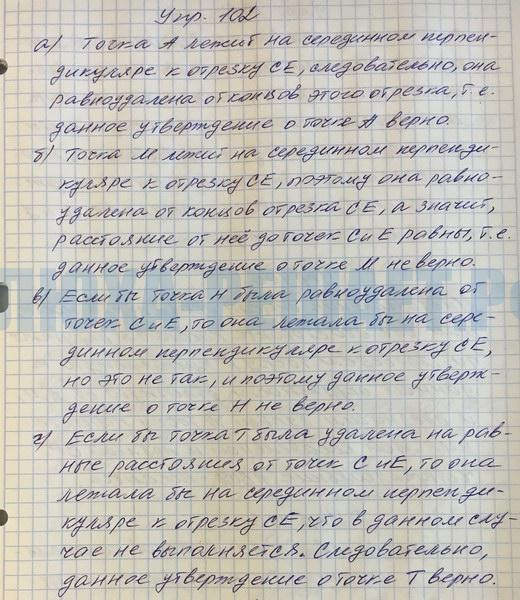 Упр. 102
а) Точка А лежит на серединном перпен-
дикуляре к отрезку СЕ, следовательно, она
равноудалена от концов этого отрезка, т.е.
данное утверждение о точке А верно.
б) Точка М лежит на серединном перпенди-
куляре к отрезку СЕ, поэтому она равно-
удалена от концов отрезка СЕ, а значит,
расстояние от неё до точек С и Е равны, т.е.
данное утверждение о точке М не верно.
в) Если бы точка Н была равноудалена от
точек С и Е, то она лежала бы на сере-
динном перпендикуляре к отрезку СЕ,
но это не так, и поэтому данное утверж-
дение о точке Н не верно.
г) Если бы точка Т была удалена на рав-
ные расстояния от точек С и Е, то она
лежала бы на серединном перпенди-
куляре к отрезку СЕ, что в данном слу-
чае не выполняется. Следовательно,
данное утверждение о точке Т верно.